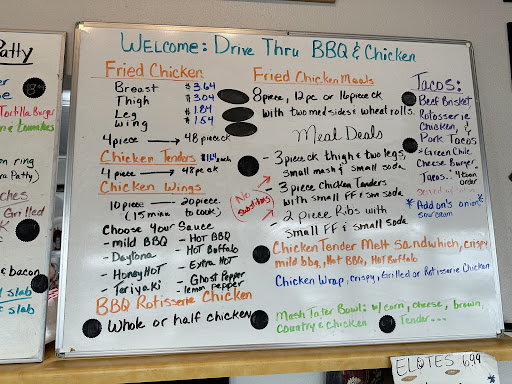 Patty
Tortilla Burger
on ring
ra Patty)
ches
Grilled
& bacon
slab
slab
WELCOME: DRIVE THRU BBQ & CHICKEN
Fried Chicken
Breast $3.64
Thigh $3.04
Leg $1.84
Wing $1.54
4piece → 48 pieces
Chicken Tenders
4 piece → 48 peak
Chicken Wings
10 piece → 20 piece
(15 mins to cook)
Choose Your Sauce
- mild BBQ
- Daytona
- Honey HOT
- Teriyaki
- HOT BBQ
- Hot Buffalo
- Extra HOT
- Ghost Pepper
- lemon pepper
BBQ Rotisserie Chicken
Whole or half chicken
Fried Chicken Meals
8piece, 12pc or 16piece
with two med sides & wheat rolls.
Meal Deals
- 3 piece thigh & two legs,
small mash & small soda
- 3 piece chicken Tanders
with small FF & sm soda
- 2 piece Ribs with
small FF & small soda
No
Chicken Tender Melt Sandwhich, crispy
mild bbq, Hot BBQ, HOT Buffalo
Chicken Wrap, crispy, Grilled or Rotisserie Chicken
Mash Tater Bowl: w/ corn, cheese, brown,
Country & chicken
Tender...
Tacos:
Beef Brisket,
Rotosserie
Chicken, &
Pork Tacos
*Green Chile
Cheese Burger
Tacos..
*Addon's onion*
sour cream
ELOTES 6.99